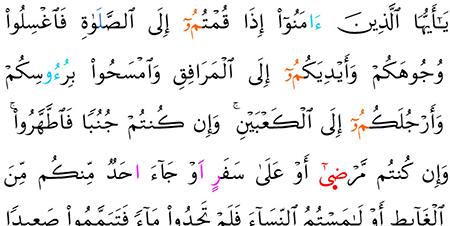 يَـٰٓأَيُّهَا ٱلَّذِينَ ءَامَنُوٓاْ إِذَا قُمْتُمُۥٓ إِلَى ٱلصَّلَوٰةِ فَٱغْسِلُواْ
وُجُوهَكُمْ وَأَيْدِيَكُمُۥٓ إِلَى ٱلْمَرَافِقِ وَٱمْسَحُواْ بِرُءُوسِكُمْ
وَأَرْجُلَكُمُۥٓ إِلَى ٱلْكَعْبَيْنِ ۚ وَإِن كُنتُمْ جُنُبًا فَٱطَّهَّرُواْ ۚ
وَإِن كُنتُم مَّرْضَىٰٓ أَوْ عَلَىٰ سَفَرٍ اَوْ جَآءَ احَدٌ مِّنكُم مِّنَ
ٱلْغَآئِطِ أَوْ لَـٰمَسْتُمُ ٱلنِّسَآءَ فَلَمْ تَجِدُواْ مَآءً فَتَيَمَّمُواْ صَعِيدًا